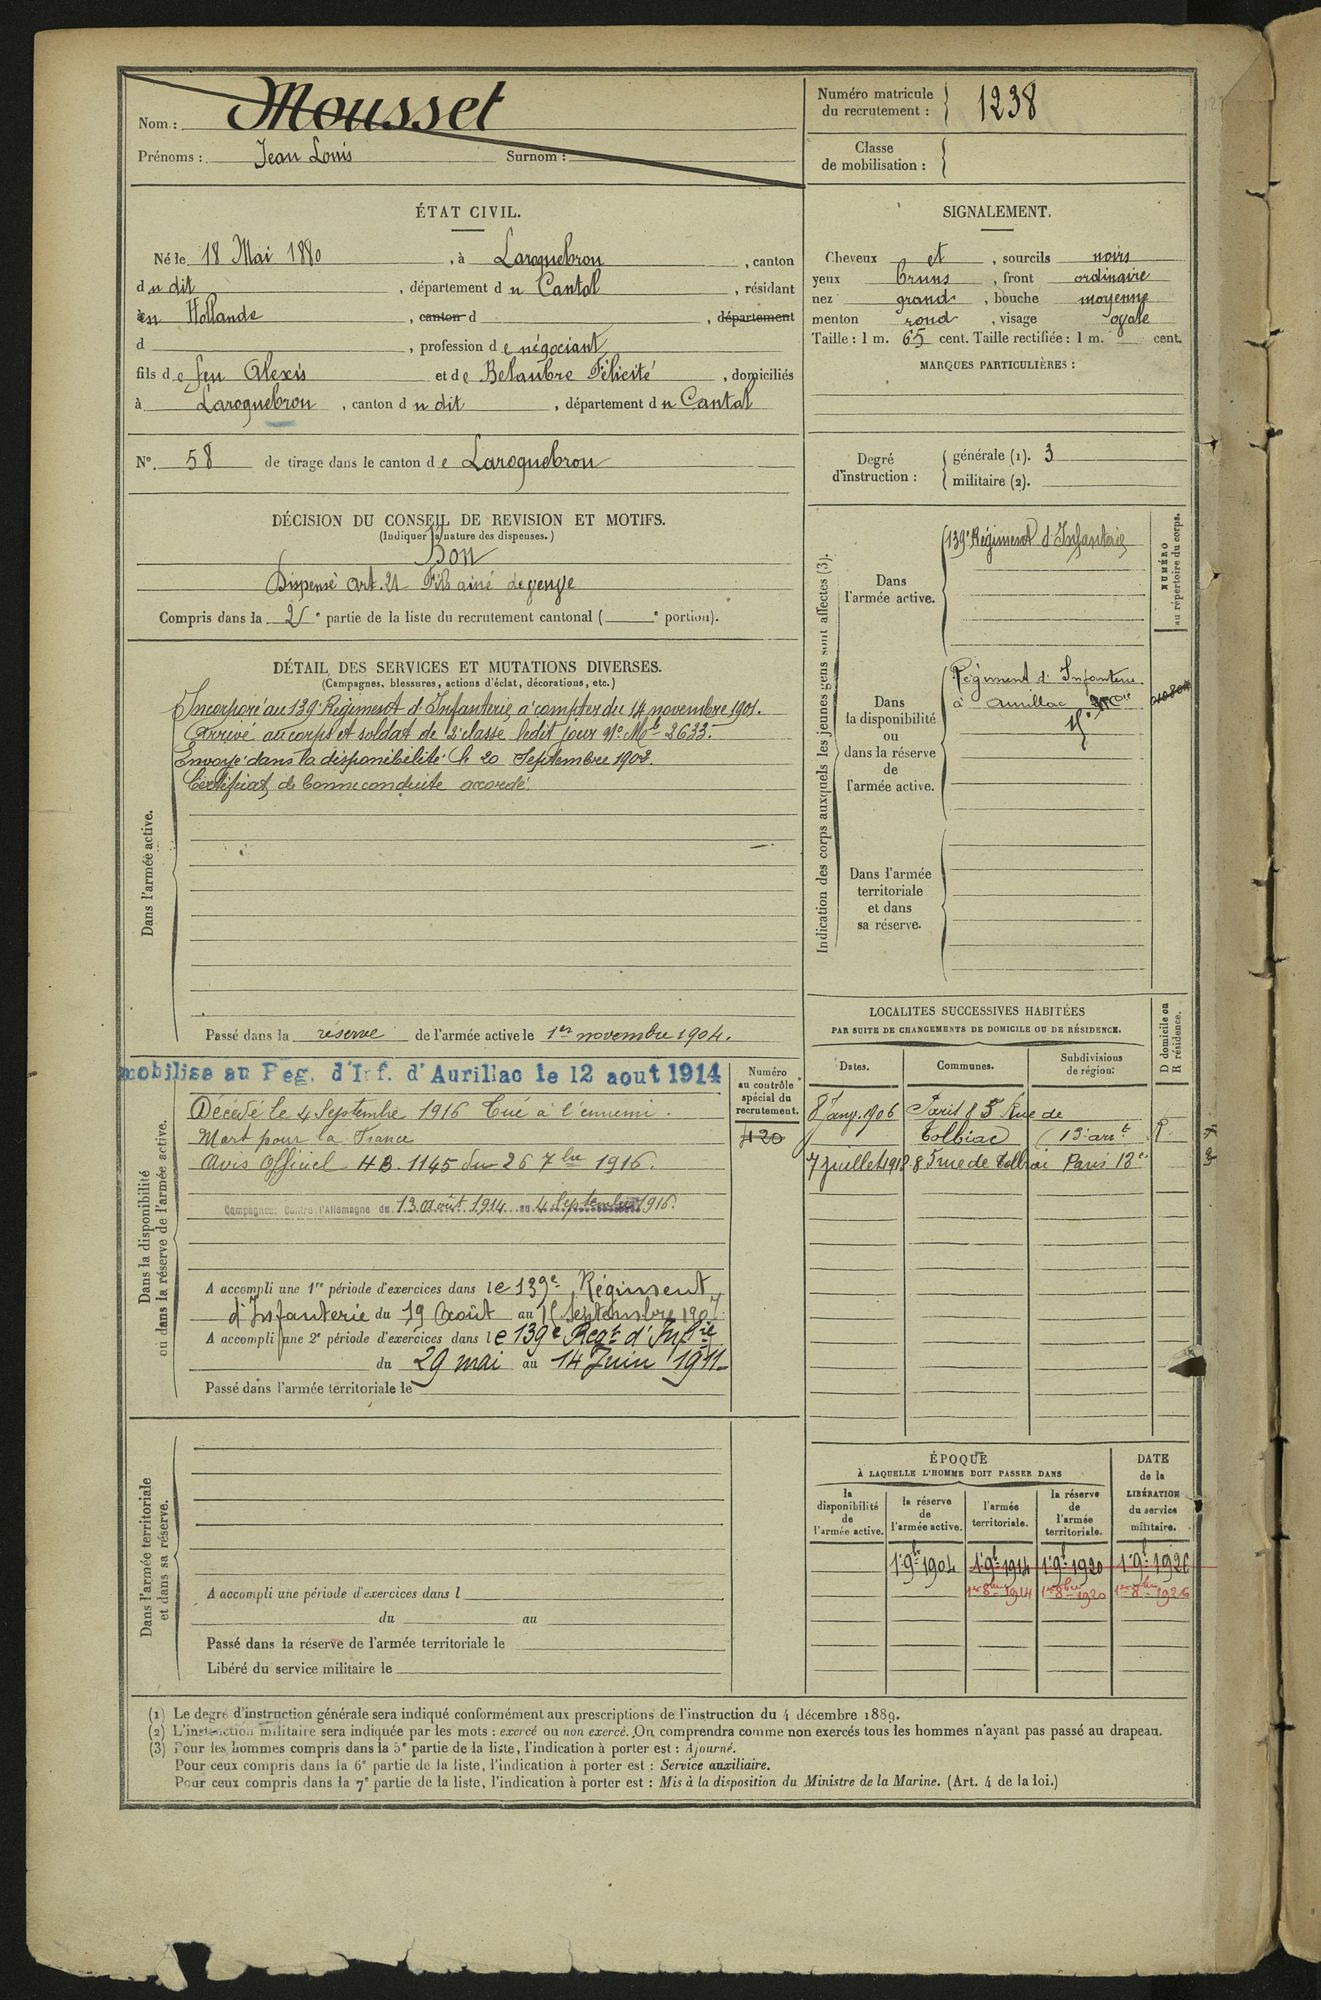 Nom : Mousset
Prénoms : Jean Louis Surnom :
Numéro matricule du recrutement : 1238
Classe de mobilisation :
ÉTAT CIVIL.
Né le 18 Mai 1880, à Laroquebrou, canton
du dit, département du Cantal, résidant
en Hollande, canton d , département
d , profession de négociant
fils de feu Alexis et de Belaubre Félicité, domiciliés
à Laroquebrou, canton du dit, département du Cantal
N° 58 de tirage dans le canton de Laroquebrou
SIGNALEMENT.
Cheveux et, sourcils noirs
yeux bruns, front ordinaire
nez grand, bouche moyenne
menton rond, visage ovale
Taille : 1 m. 65 cent. Taille rectifiée : 1 m. cent.
MARQUES PARTICULIÈRES :
Degré d'instruction : générale (1). 3
militaire (2).
DÉCISION DU CONSEIL DE REVISION ET MOTIFS.
(Indiquer la nature des dispenses.)
Bon
Dispensé Art. 21 Fils ainé de veuve
Compris dans la 2e partie de la liste du recrutement cantonal ( e portion).
DÉTAIL DES SERVICES ET MUTATIONS DIVERSES.
(Campagnes, blessures, actions d'éclat, décorations, etc.)
Dans l'armée active.
Incorporé au 139e Régiment d'Infanterie à compter du 14 novembre 1901.
Arrivé au corps et soldat de 2e classe ledit jour N° Mle 2633.
Envoyé dans la disponibilité le 20 Septembre 1902.
Certificat de bonne conduite accordé.
Passé dans la réserve de l'armée active le 1er novembre 1904.
Indication des corps auxquels les jeunes gens sont affectés (3).
NUMÉRO au répertoire du corps.
Dans l'armée active.
139e Régiment d'Infanterie
Dans la disponibilité ou dans la réserve de l'armée active.
Régiment d'Infanterie
à Aurillac
Dans l'armée territoriale et dans sa réserve.
LOCALITES SUCCESSIVES HABITÉES
PAR SUITE DE CHANGEMENTS DE DOMICILE OU DE RÉSIDENCE.
D domicile ou R résidence.
Dates. Communes. Subdivisions de région:
8 Janv. 1906 Paris 85 Rue de
Tolbiac (13e arrt R
7 juillet 191 85 rue de Tolbiac Paris 13e
Dans la disponibilité ou dans la réserve de l'armée active.
mobilise au Reg. d'Inf. d'Aurillac le 12 aout 1914
Numéro au contrôle spécial du recrutement.
120
Décédé le 4 Septembre 1916 Tué à l'ennemi.
Mort pour la France
Avis Officiel HB. 1145 du 26 7bre 1916.
Campagnes: Contre l'Allemagne du 13 Août 1914 au 4 Septembre 1916.
A accompli une 1re période d'exercices dans le 139e Régiment
d'Infanterie du 19 Août au 15 Septembre 1907
A accompli une 2e période d'exercices dans le 139e Regt d'Infie
du 29 mai au 14 Juin 1911
Passé dans l'armée territoriale le
Dans l'armée territoriale et dans sa réserve.
A accompli une période d'exercices dans l
du au
Passé dans la réserve de l'armée territoriale le
Libéré du service militaire le
ÉPOQUE
À LAQUELLE L'HOMME DOIT PASSER DANS
DATE de la LIBÉRATION du service militaire.
la disponibilité de l'armée active. la réserve de l'armée active. l'armée territoriale. la réserve de l'armée territoriale.
1er 9bre 1904 1er 9bre 1914 1er 9bre 1920 1er 9bre 1926
1er 8bre 1914 1er 8bre 1920 1er 8bre 1926
(1) Le degré d'instruction générale sera indiqué conformément aux prescriptions de l'instruction du 4 décembre 1889.
(2) L'instruction militaire sera indiquée par les mots : exercé ou non exercé. On comprendra comme non exercés tous les hommes n'ayant pas passé au drapeau.
(3) Pour les hommes compris dans la 5e partie de la liste, l'indication à porter est : Ajourné.
Pour ceux compris dans la 6e partie de la liste, l'indication à porter est : Service auxiliaire.
Pour ceux compris dans la 7e partie de la liste, l'indication à porter est : Mis à la disposition du Ministre de la Marine. (Art. 4 de la loi.)